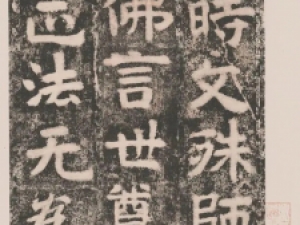 時文殊師
佛言世尊
法无